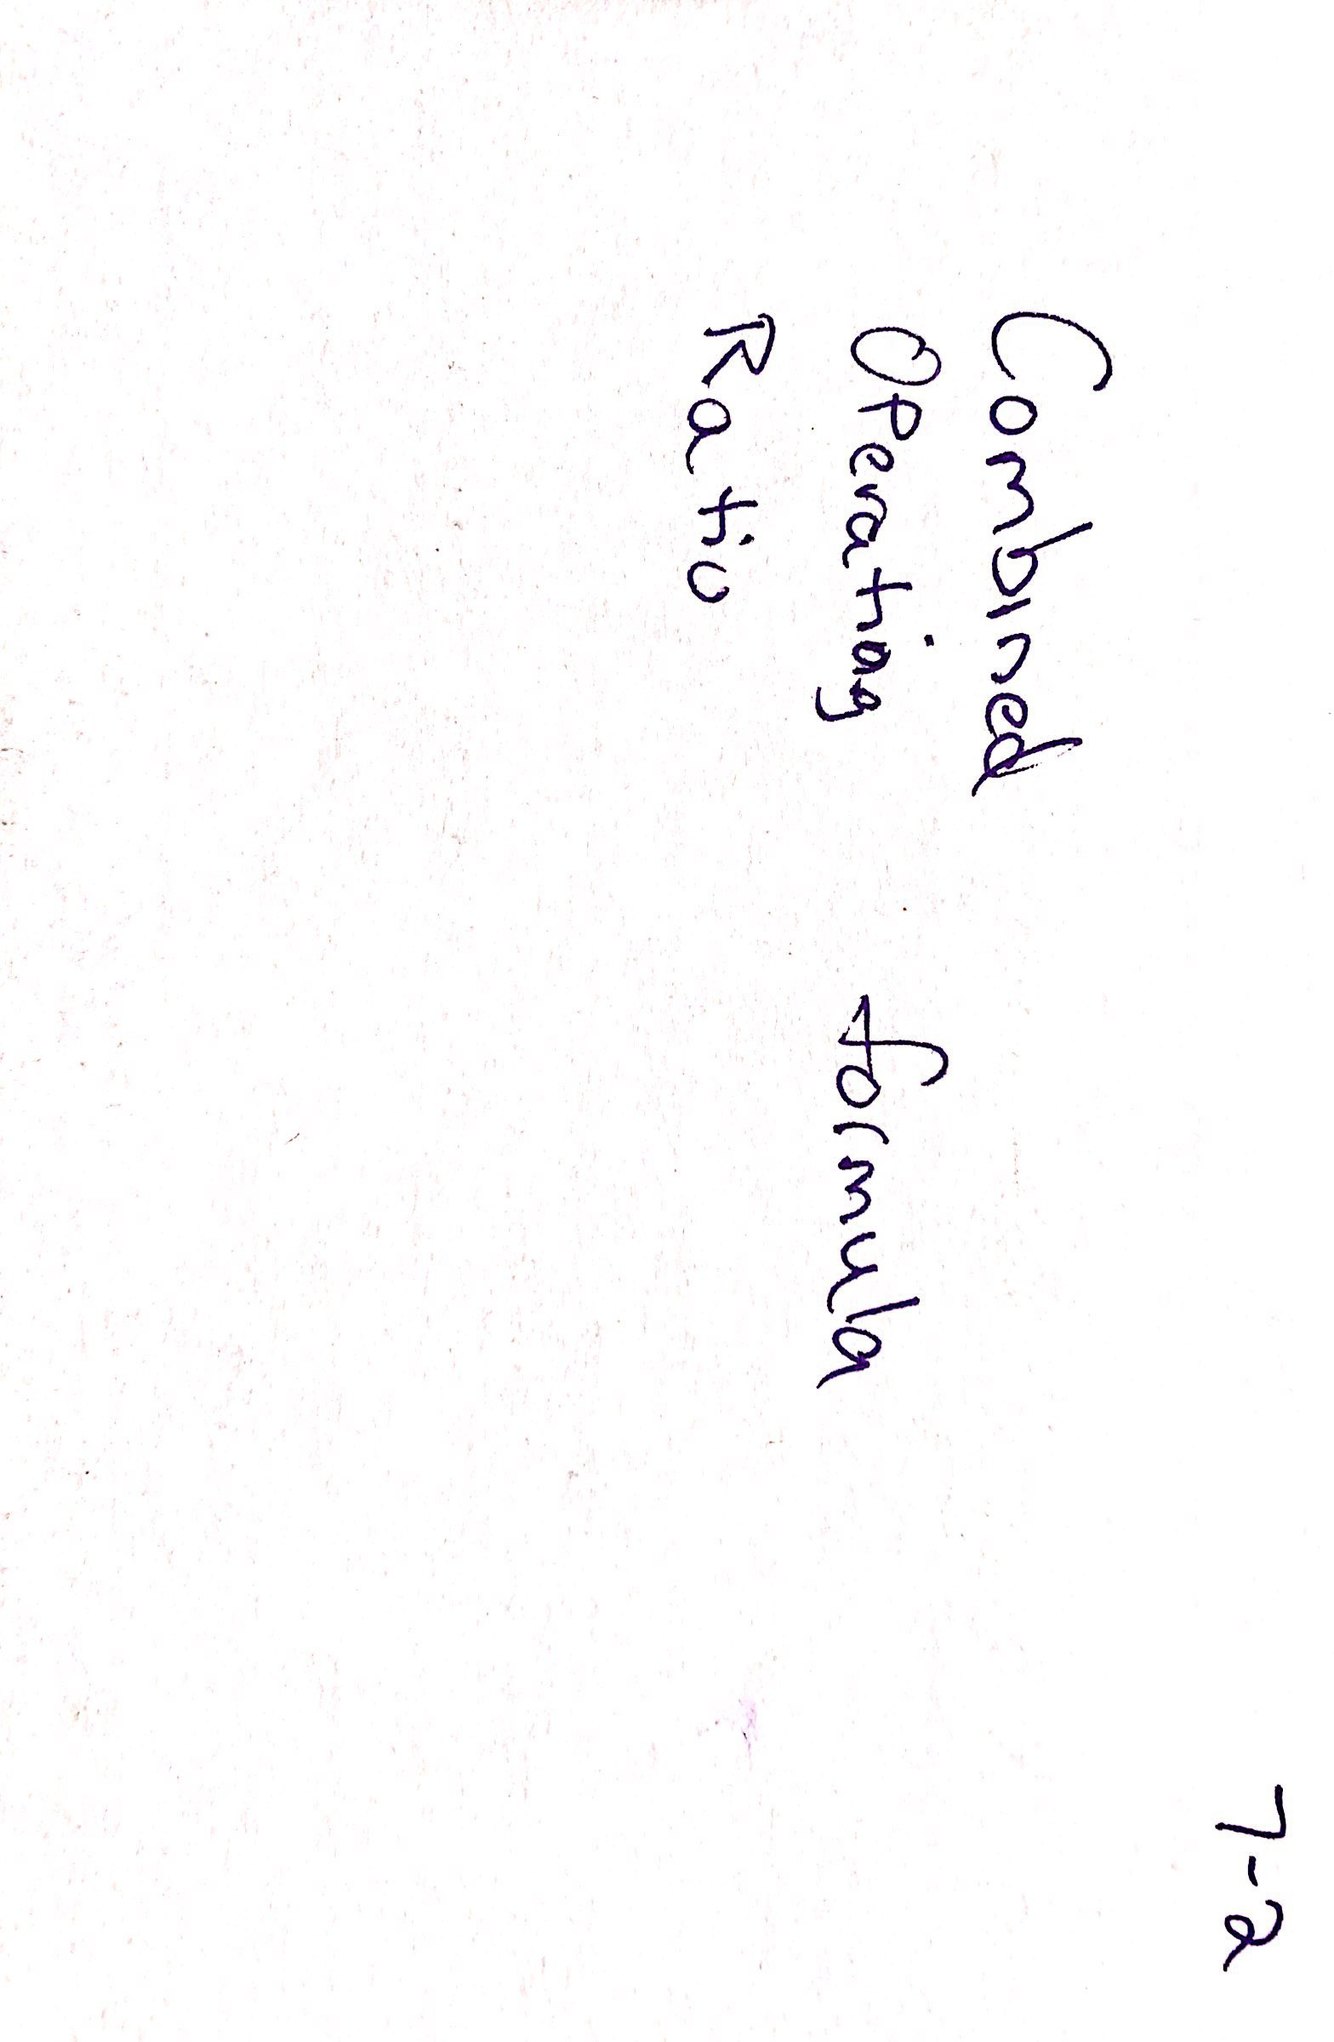 7-2
Combined
Operating
Ratio
formula